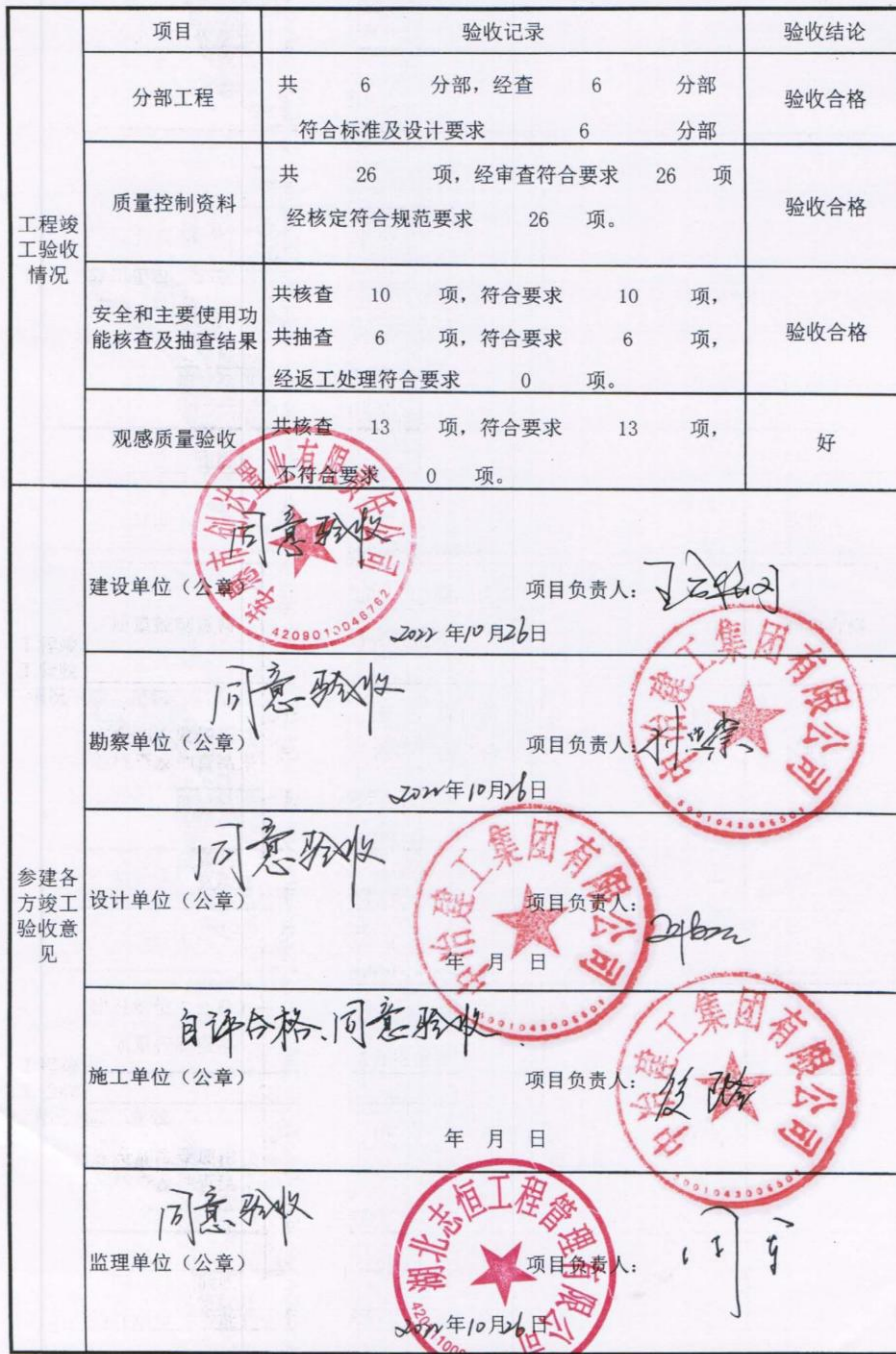 项目 验收记录 验收结论
工程竣工验收情况
分部工程
共 6 分部，经查 6 分部
符合标准及设计要求 6 分部
验收合格
质量控制资料
共 26 项，经审查符合要求 26 项
经核定符合规范要求 26 项。
验收合格
安全和主要使用功
能核查及抽查结果
共核查 10 项，符合要求 10 项，
共抽查 6 项，符合要求 6 项，
经返工处理符合要求 0 项。
验收合格
观感质量验收
共核查 13 项，符合要求 13 项，
不符合要求 0 项。
好
参建各方竣工验收意见
同意验收
建设单位（公章） 项目负责人：
2022年10月26日
4209010048762
同意验收
勘察单位（公章） 项目负责人：
建工集团有限公司
2022年10月26日
同意验收
设计单位（公章） 项目负责人：
建工集团有限公司
年 月 日
自评合格、同意验收
施工单位（公章） 项目负责人：
建工集团有限公司
年 月 日
同意验收
监理单位（公章） 项目负责人：
湖北志恒工程管理有限公司
2022年10月26日